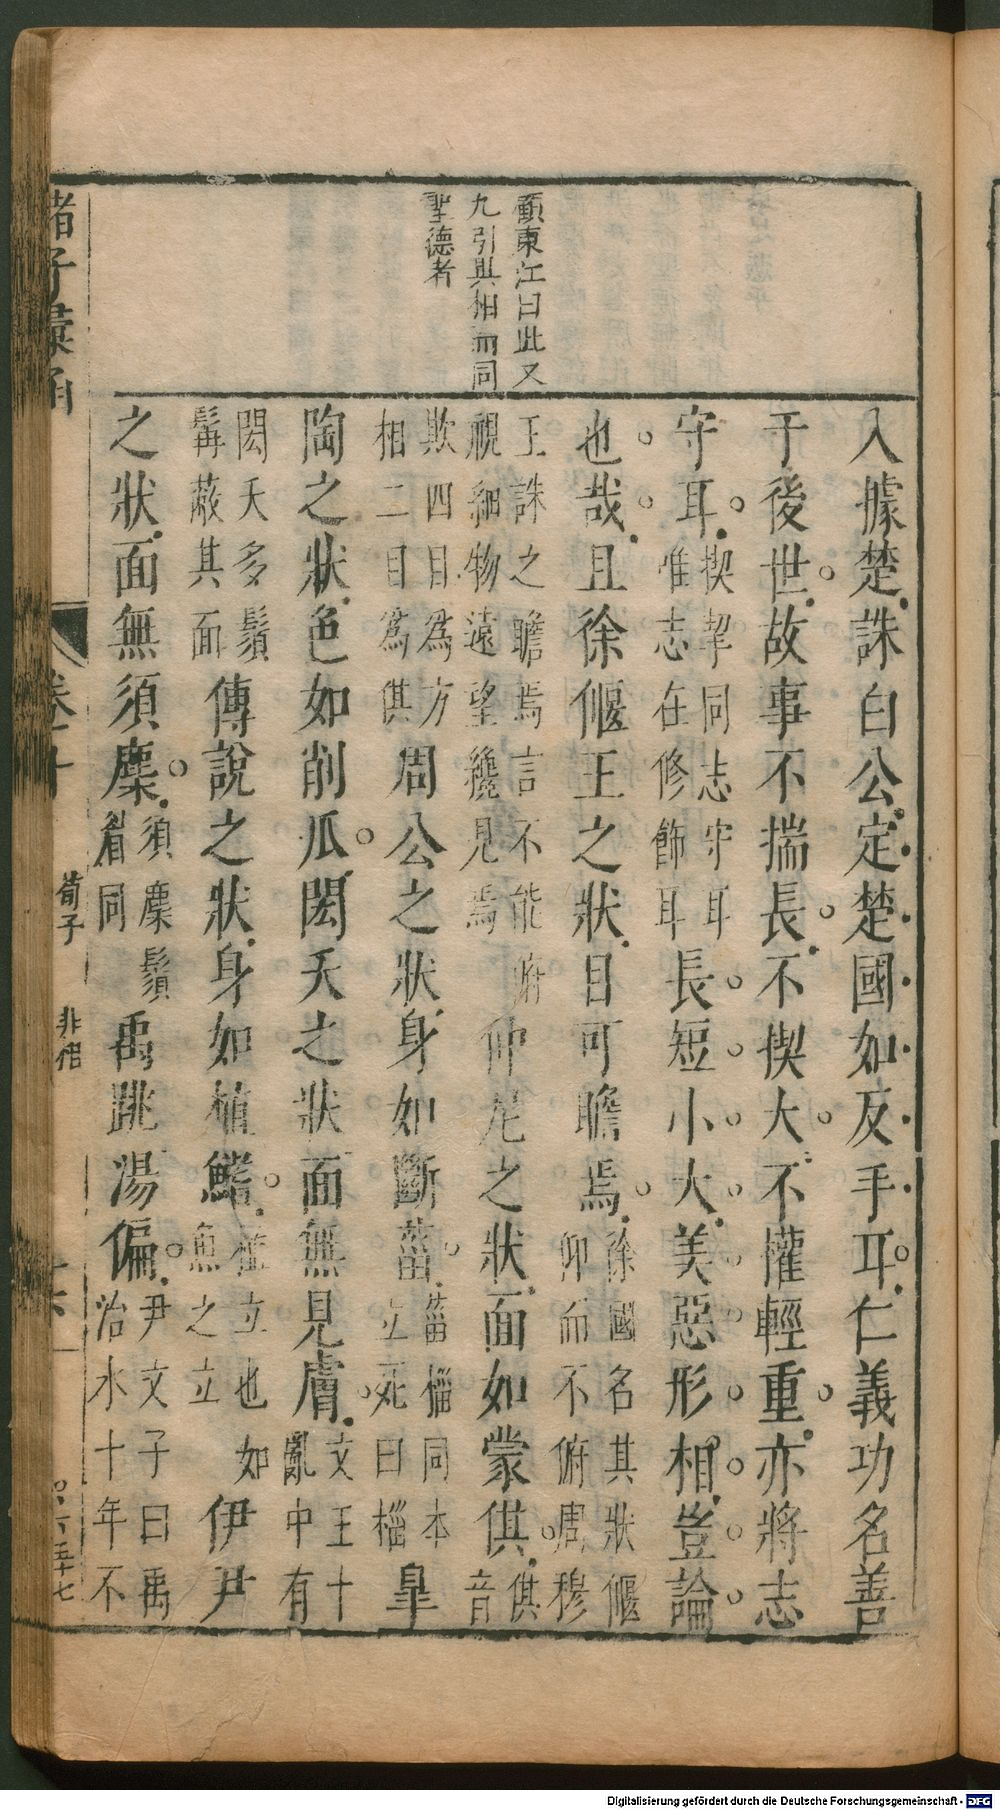 顧東江曰此又
九引與相而同
聖德者
入據楚誅白公定楚國如反手耳仁義功名善
于後世故事不揣長不揳大不權輕重亦將志
守耳揳挈同志守耳惟志在修飾耳長短小大美惡形相豈論
也哉且徐偃王之狀目可瞻焉徐國名其狀偃仰而不俯周穆
王誅之瞻焉言不能俯視細物遠望纔見焉仲尼之狀面如蒙倛倛音
欺四目為方相二目為倛周公之狀身如斷菑菑橊同本立死曰橊皐
陶之狀色如削瓜閎夭之狀面無見膚文王十亂中有
閎夭多鬚髯蔽其面傅說之狀身如植鰭植立也如魚之立伊尹
之狀面無須麋須麋鬚眉同禹跳湯偏尹文子曰禹治水十年不
諸子彙函
卷十
荀子
非相
Digitalisierung gefördert durch die Deutsche Forschungsgemeinschaft - DFG